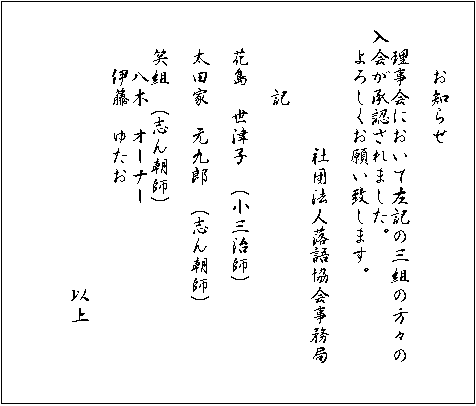 お知らせ
理事会において左記の三組の方々の
入会が承認されました。
よろしくお願い致します。
社団法人落語協会事務局
記
花島　世津子　(小三治師)
太田家　元九郎　(志ん朝師)
笑組　(志ん朝師)
八木　オーナー
伊藤　ゆたお
以上